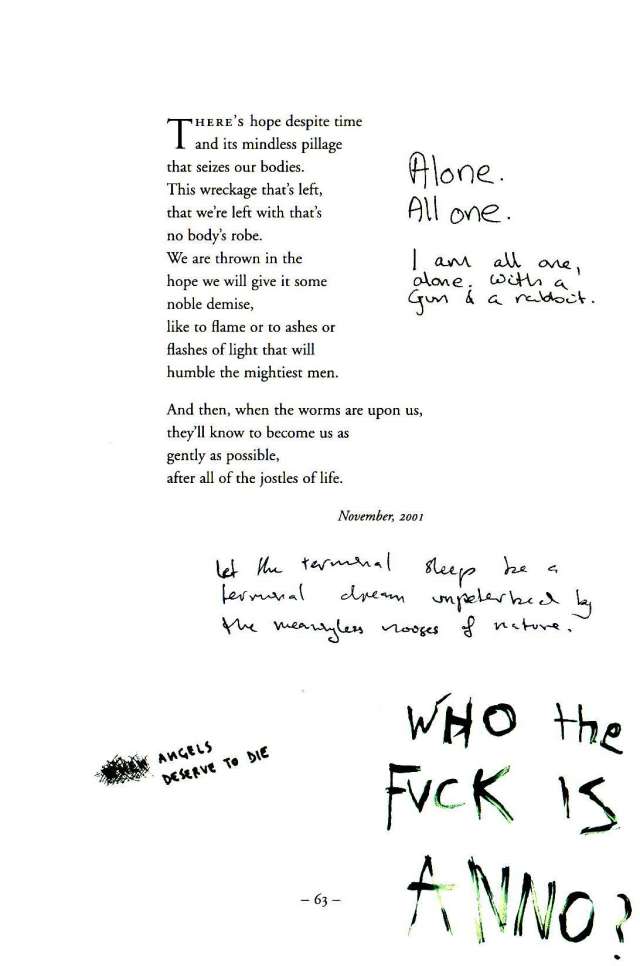 THERE'S hope despite time
and its mindless pillage
that seizes our bodies.
This wreckage that's left,
that we're left with that's
no body's robe.
We are thrown in the
hope we will give it some
noble demise,
like to flame or to ashes or
flashes of light that will
humble the mightiest men.
And then, when the worms are upon us,
they'll know to become us as
gently as possible,
after all of the jostles of life.
November, 2001
Alone.
All one.
I am all one,
alone. With a
Gun & a rabbit.
let the terminal sleep be a
terminal dream unpeterbed by
the meanyless nooses of nature.
WHEN ANGELS
DESERVE TO DIE
WHO the
FVCK IS
ANNO?
– 63 –